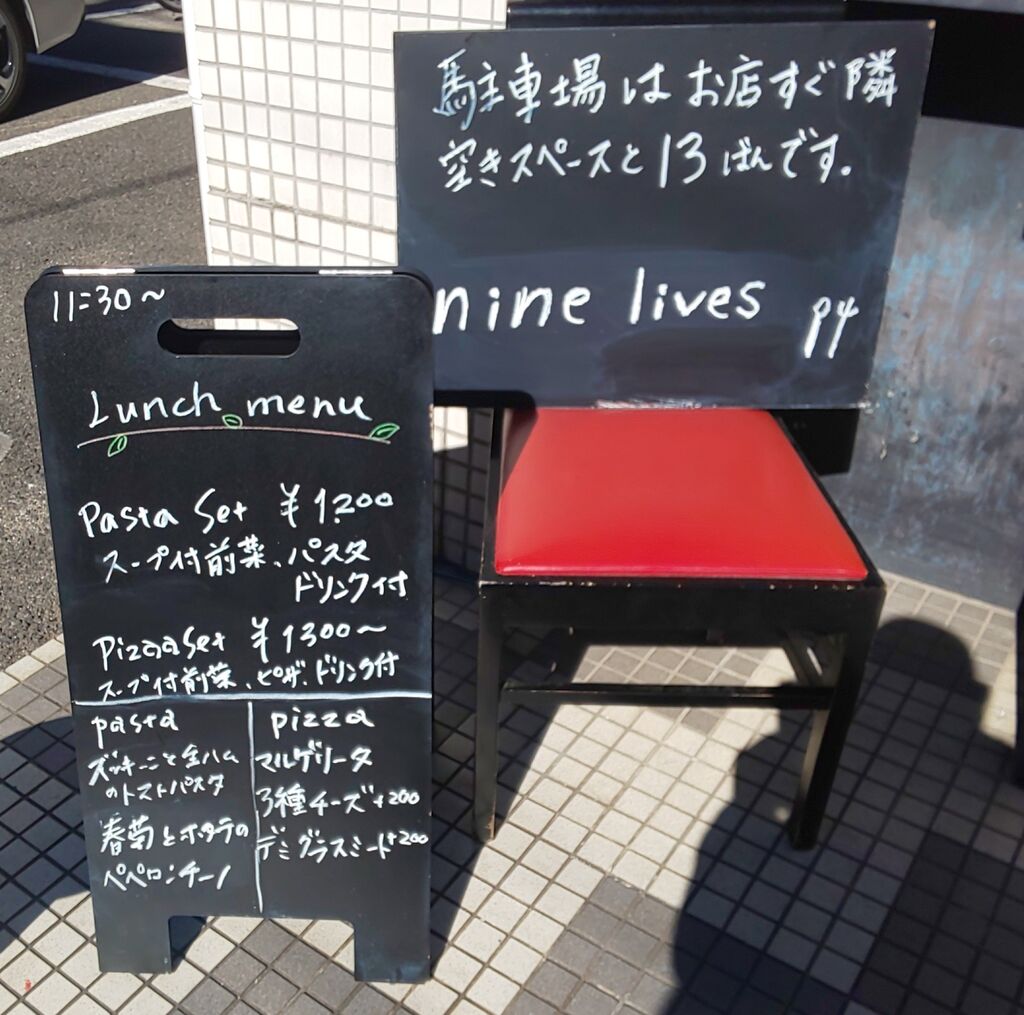 馬駐車場はお店すぐ隣
空きスペースと13ばんです。
nine lives
11:30~
Lunch menu
Pasta Set ¥1,200
スープ付前菜、パスタ
ドリンク付
Pizza Set ¥1300~
スープ付前菜、ピザ、ドリンク付
pasta
ズッキーニと生ハム
のトマトパスタ
春菊とホタテの
ペペロンチーノ
pizza
マルゲリータ
3種チーズ+200
デミグラスミート+200